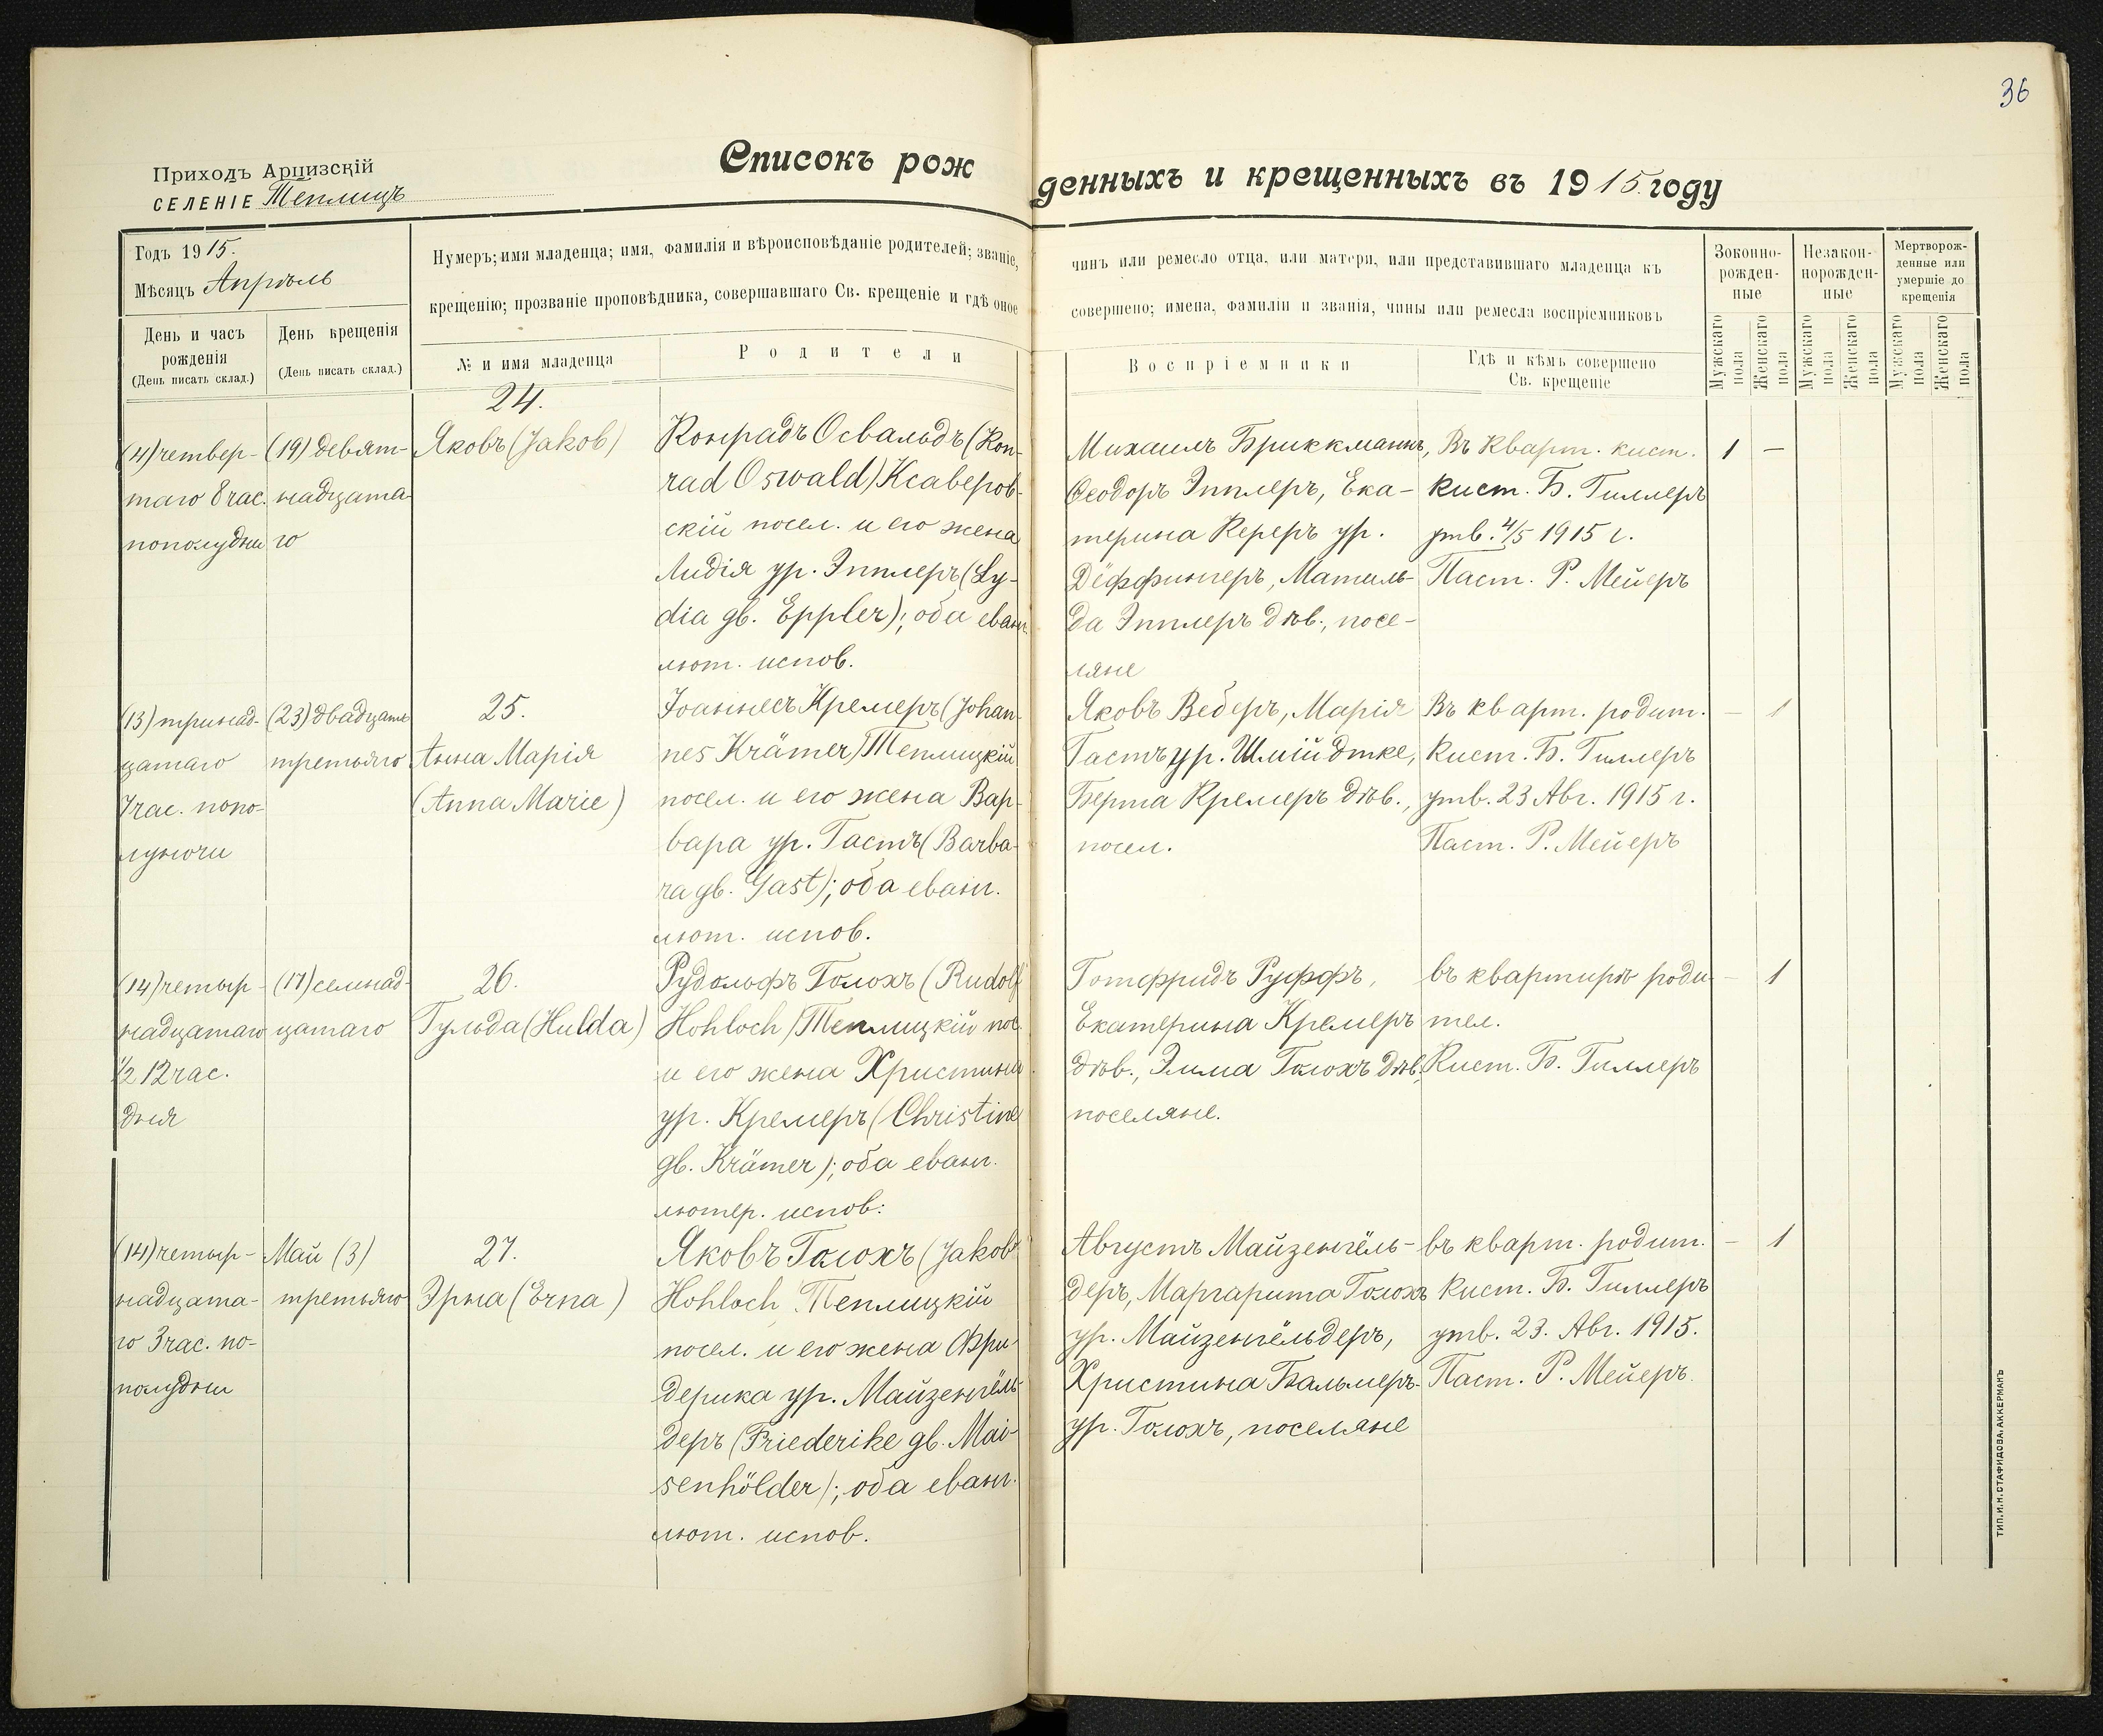 36
Приходъ Арцизскій
СЕЛЕНІЕ Теплицъ
Списокъ рожденныхъ и крещенныхъ въ 1915. году
Годъ 1915.
Мѣсяцъ Апрѣль
Нумеръ; имя младенца; имя, фамилія и вѣроисповѣданіе родителей; званіе,
чинъ или ремесло отца, или матери, или представившаго младенца къ
крещенію; прозваніе проповѣдника, совершавшаго Св. крещеніе и гдѣ оное
совершено; имена, фамиліи и званія, чины или ремесла воспріемниковъ
День и часъ
рожденія
(День писать склад.)
День крещенія
(День писать склад.)
№ и имя младенца
Родители
Воспріемники
Гдѣ и кѣмъ совершено
Св. крещеніе
Зоконно-
рожден-
ные
Незакон-
норожден-
ные
Мертворож-
денные или
умершіе до
крещенія
Мужскаго пола
Женскаго пола
Мужскаго пола
Женскаго пола
Мужскаго пола
Женскаго пола
(4) четвер-
таго 8 час.
пополудни
(19) девят-
надцата-
го
24.
Яковъ (Jakob)
Конрадъ Освальдъ (Kon-
rad Oswald) Ксаверов-
скій посел. и его жена
Лидія ур. Эпплеръ (Ly-
dia gb. Eppler); оба еванг.
лют. испов.
Михаилъ Бриккманнъ,
Ѳеодоръ Эпплеръ, Ека-
терина Ререръ ур.
Дёффингеръ, Матиль-
да Эпплеръ дѣв., посе-
ляне
Въ кварт. кист.
Кист. Б. Гиллеръ
утв. 4/5 1915 г.
Паст. Р. Мейеръ
1 —
(13) тринад-
цатаго
7 час. попо-
луночи
(23) двадцать
третьяго
25.
Анна Марія
(Anna Marie)
Іоаннесъ Кремеръ (Johan-
nes Krämer) Теплицкій
посел. и его жена Вар-
вара ур. Гастъ (Barba-
ra gb. Gast); оба еванг.
лют. испов.
Яковъ Веберъ, Марія
Гастъ ур. Шмидтке,
Берта Кремеръ дѣв.,
посел.
Въ кварт. родит.
Кист. Б. Гиллеръ
утв. 23 Авг. 1915 г.
Паст. Р. Мейеръ
— 1
(14) четыр-
надцатаго
1/2 12 час.
дня
(17) семнад-
цатаго
26.
Гульда (Hulda)
Рудольфъ Голохъ (Rudolf
Hohloch) Теплицкій пос.
и его жена Христина
ур. Кремеръ (Christine
gb. Krämer); оба еванг.
лютер. испов.
Готфридъ Руффъ,
Екатерина Кремеръ
дѣв., Эмма Голохъ дѣв.,
поселяне.
въ квартирѣ роди-
тел.
Кист. Б. Гиллеръ
— 1
(14) четыр-
надцата-
го 3 час. по-
полудни
Май (3)
третьяго
27.
Эрна (Erna)
Яковъ Голохъ (Jakob
Hohloch Теплицкій
посел. и его жена Фри-
дерика ур. Майзенгёль-
деръ (Friederike gb. Mai-
senhölder); оба еванг.
лют. испов.
Августъ Майзенгёль-
деръ, Маргарита Голохъ
ур. Майзенгёльдеръ,
Христина Бальмеръ
ур. Голохъ, поселяне
въ кварт. родит.
Кист. Б. Гиллеръ
утв. 23. Авг. 1915.
Паст. Р. Мейеръ.
— 1
ТИП. И. Н. СТАФИДОВА, АККЕРМАНЪ